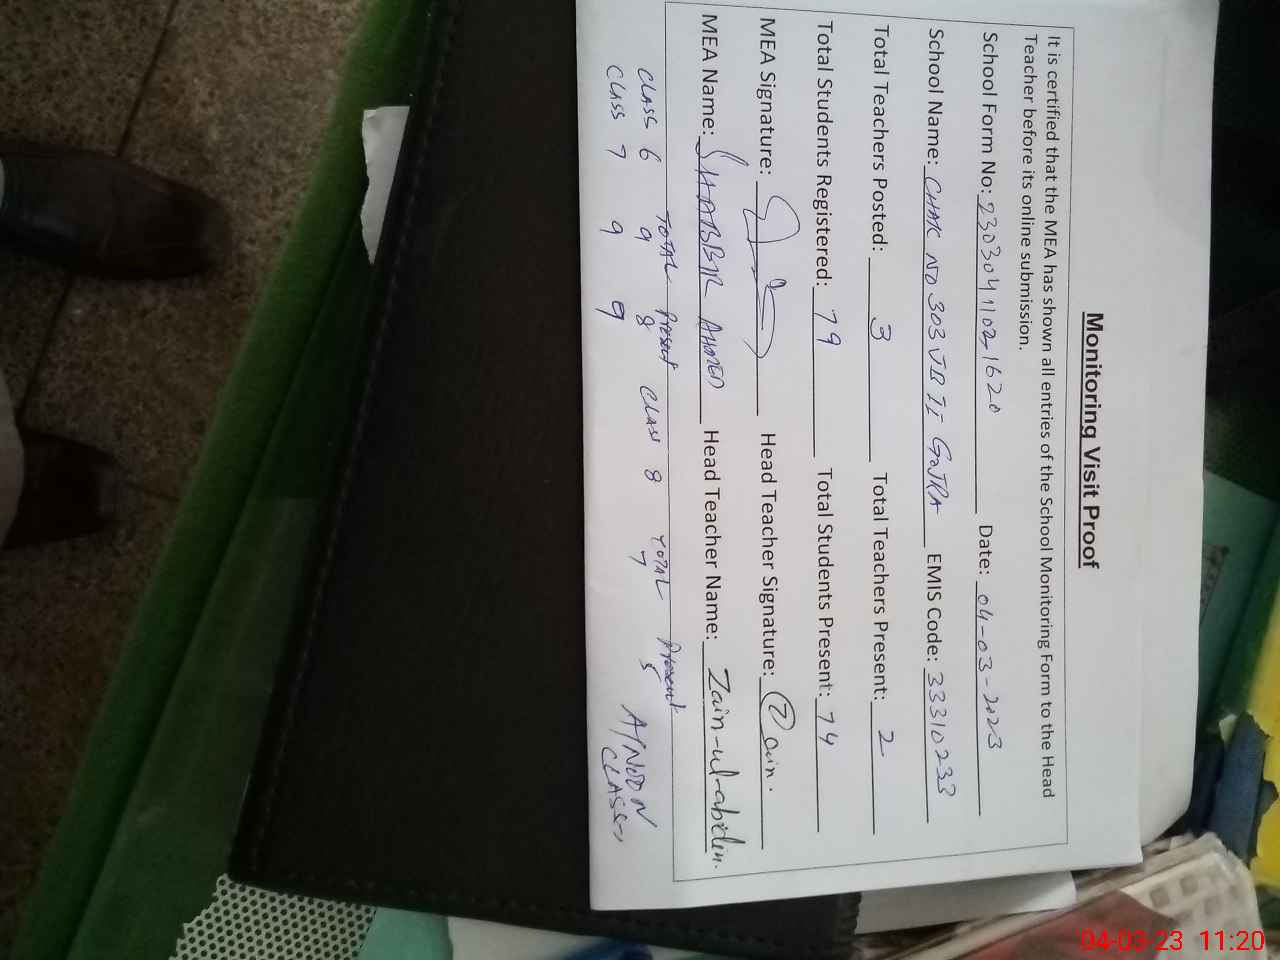 Monitoring Visit Proof
It is certified that the MEA has shown all entries of the School Monitoring Form to the Head
Teacher before its online submission.
School Form No: 2303041102-1620 Date: 04-03-2023
School Name: CHAK NO 303 JB II GOJRA EMIS Code: 33310233
Total Teachers Posted: 3 Total Teachers Present: 2
Total Students Registered: 79 Total Students Present: 74
MEA Signature: Head Teacher Signature: Zain.
MEA Name: SHABBIR AHMED Head Teacher Name: Zain-ul-abiden.
TOTAL Present TOTAL Present
CLASS 6 9 8 CLASS 8 7 5 A/NOON
CLASS 7 9 9 CLASSES
04-03-23 11:20